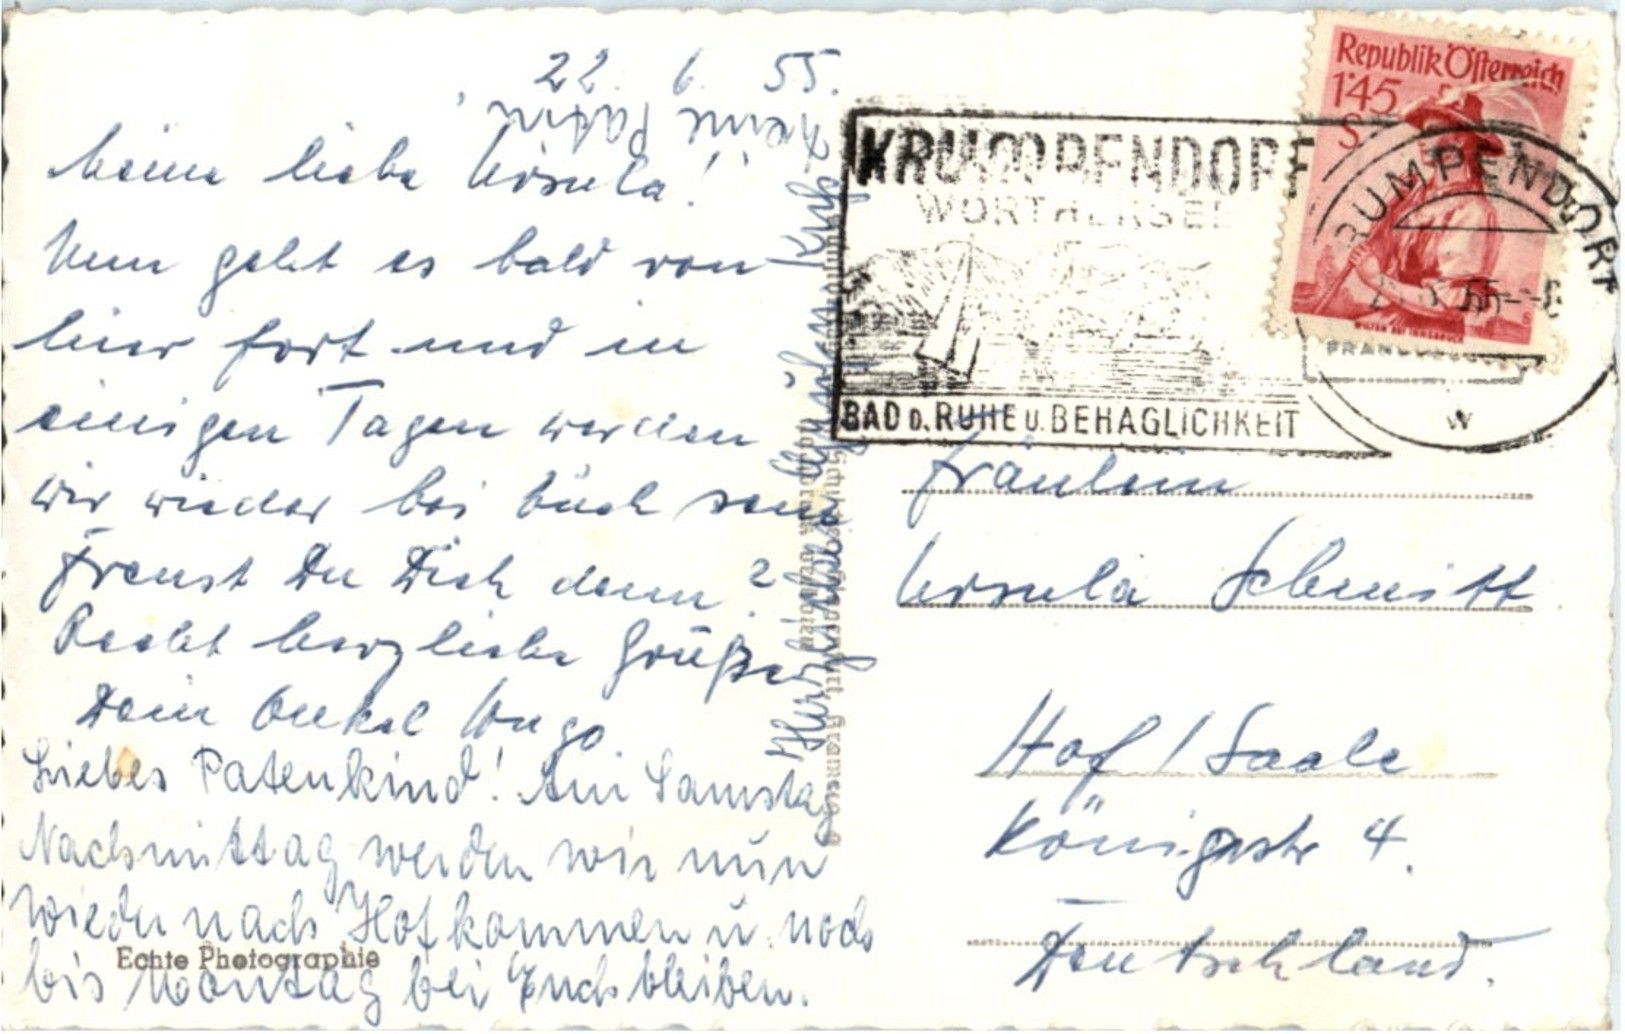 22. 6. 55.
Meine liebe Ursula!
Nun geht es bald von
hier fort und in
einigen Tagen werden
wir wieder bei Euch sein
Freust Du Dich denn?
Recht herzliche Grüße
Dein Onkel Hugo
Liebes Patenkind! Am Samstag
Nachmittag werden wir nun
wieder nach Hof kommen u. noch
bis Montag bei Euch bleiben.
Herzlichen Gruß u. Kuß
Deine Patin
Echte Photographie
KRUMPENDORF
WÖRTHERSEE
BAD D. RUHE U. BEHAGLICHKEIT
Republik Österreich
1'45
S
WILTEN BEI INNSBRUCK
KRUMPENDORF
55
W
Fräulein
Ursula Schmitt
Hof / Saale
Königstr 4.
Deutschland.